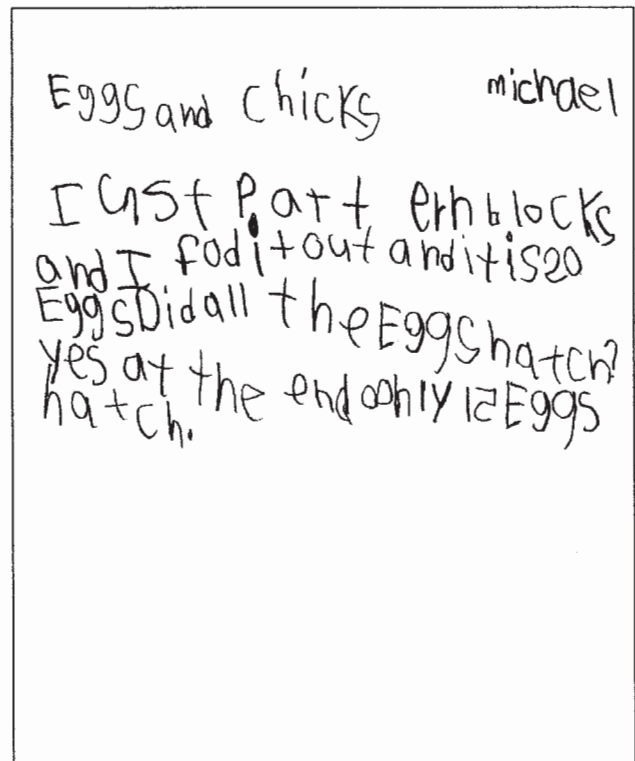 Eggs and chicks michael
I ust part ern blocks
and I fod it out and it is 20
Eggs Did all the Eggs hatch?
yes at the end oonly 12 Eggs
hatch.